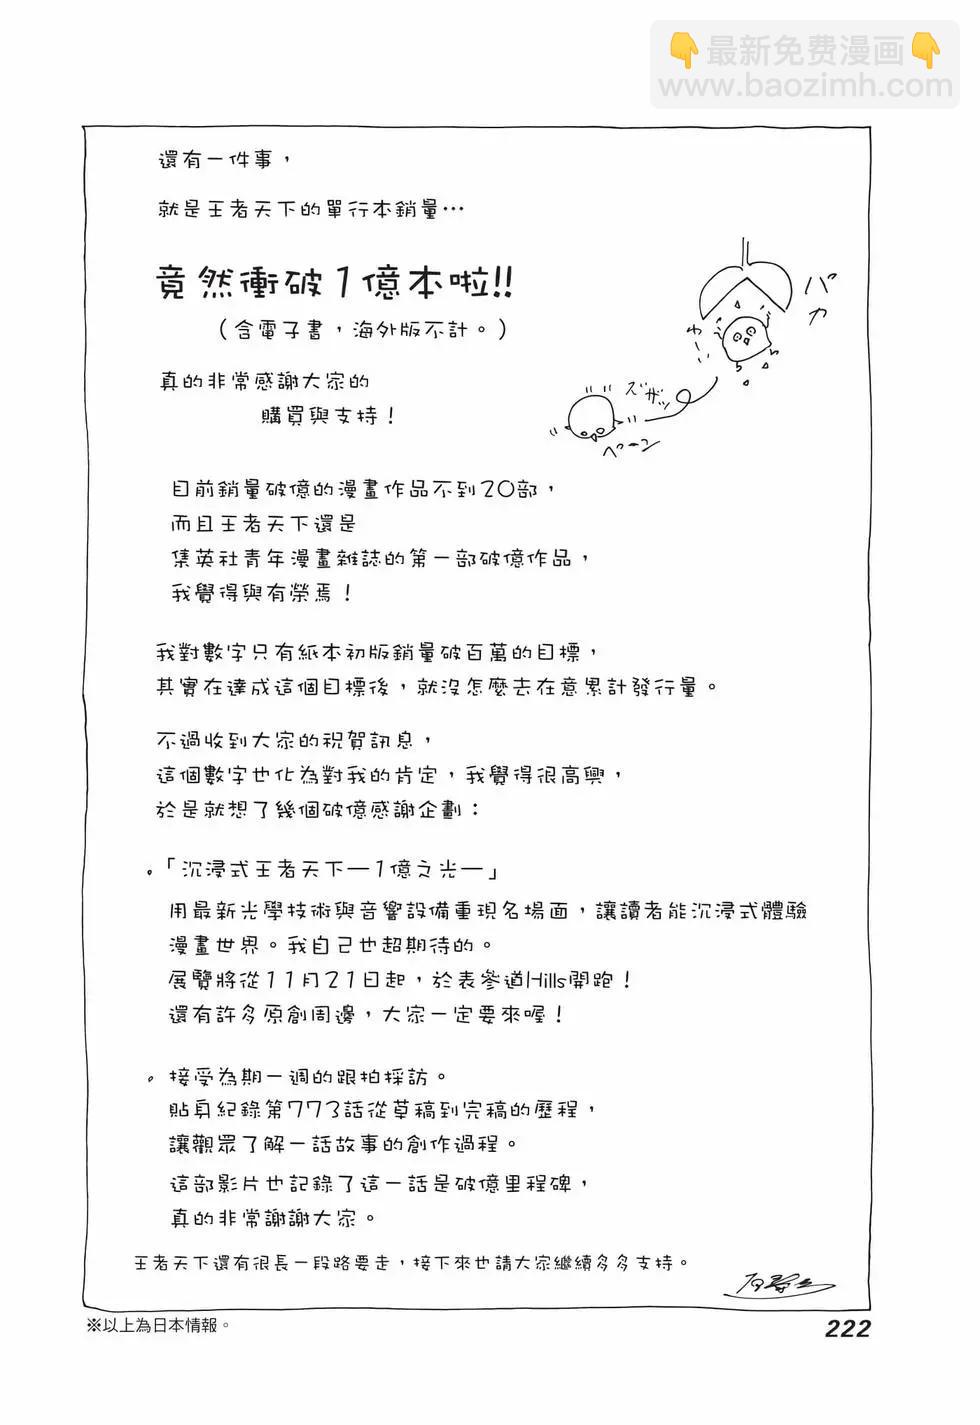 最新免费漫画
www.baozimh.com
還有一件事，
就是王者天下的單行本銷量…
竟然衝破1億本啦!!
（含電子書，海外版不計。）
真的非常感謝大家的
購買與支持！
バカ
ズザッ
目前銷量破億的漫畫作品不到20部，
而且王者天下還是
集英社青年漫畫雜誌的第一部破億作品，
我覺得與有榮焉！
我對數字只有紙本初版銷量破百萬的目標，
其實在達成這個目標後，就沒怎麼去在意累計發行量。
不過收到大家的祝賀訊息，
這個數字也化為對我的肯定，我覺得很高興，
於是就想了幾個破億感謝企劃：
。「沉浸式王者天下—1億之光—」
用最新光學技術與音響設備重現名場面，讓讀者能沉浸式體驗
漫畫世界。我自己也超期待的。
展覽將從11月21日起，於表參道Hills開跑！
還有許多原創周邊，大家一定要來喔！
。接受為期一週的跟拍採訪。
貼身紀錄第773話從草稿到完稿的歷程，
讓觀眾了解一話故事的創作過程。
這部影片也記錄了這一話是破億里程碑，
真的非常謝謝大家。
王者天下還有很長一段路要走，接下來也請大家繼續多多支持。
※以上為日本情報。
222